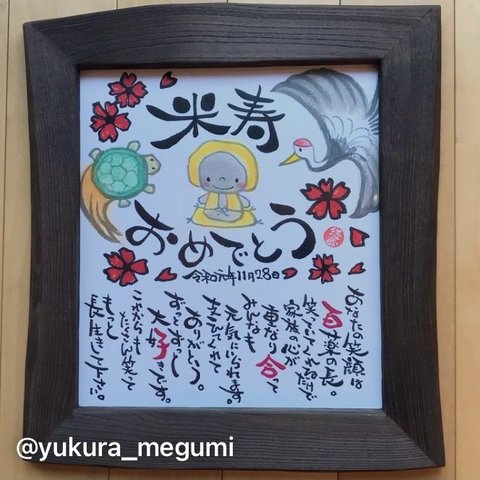 米寿
おめでとう
令和元年11月28日
あなたの笑顔は
百薬の長。
笑っていてくれるだけで
家族の心が
重なり合って
みんなも
元気にいられます。
ありがとう。
ずっとずっと
大好きです。
これからも
たくさん笑って
もっと
長生きして下さい。
@yukura_megumi